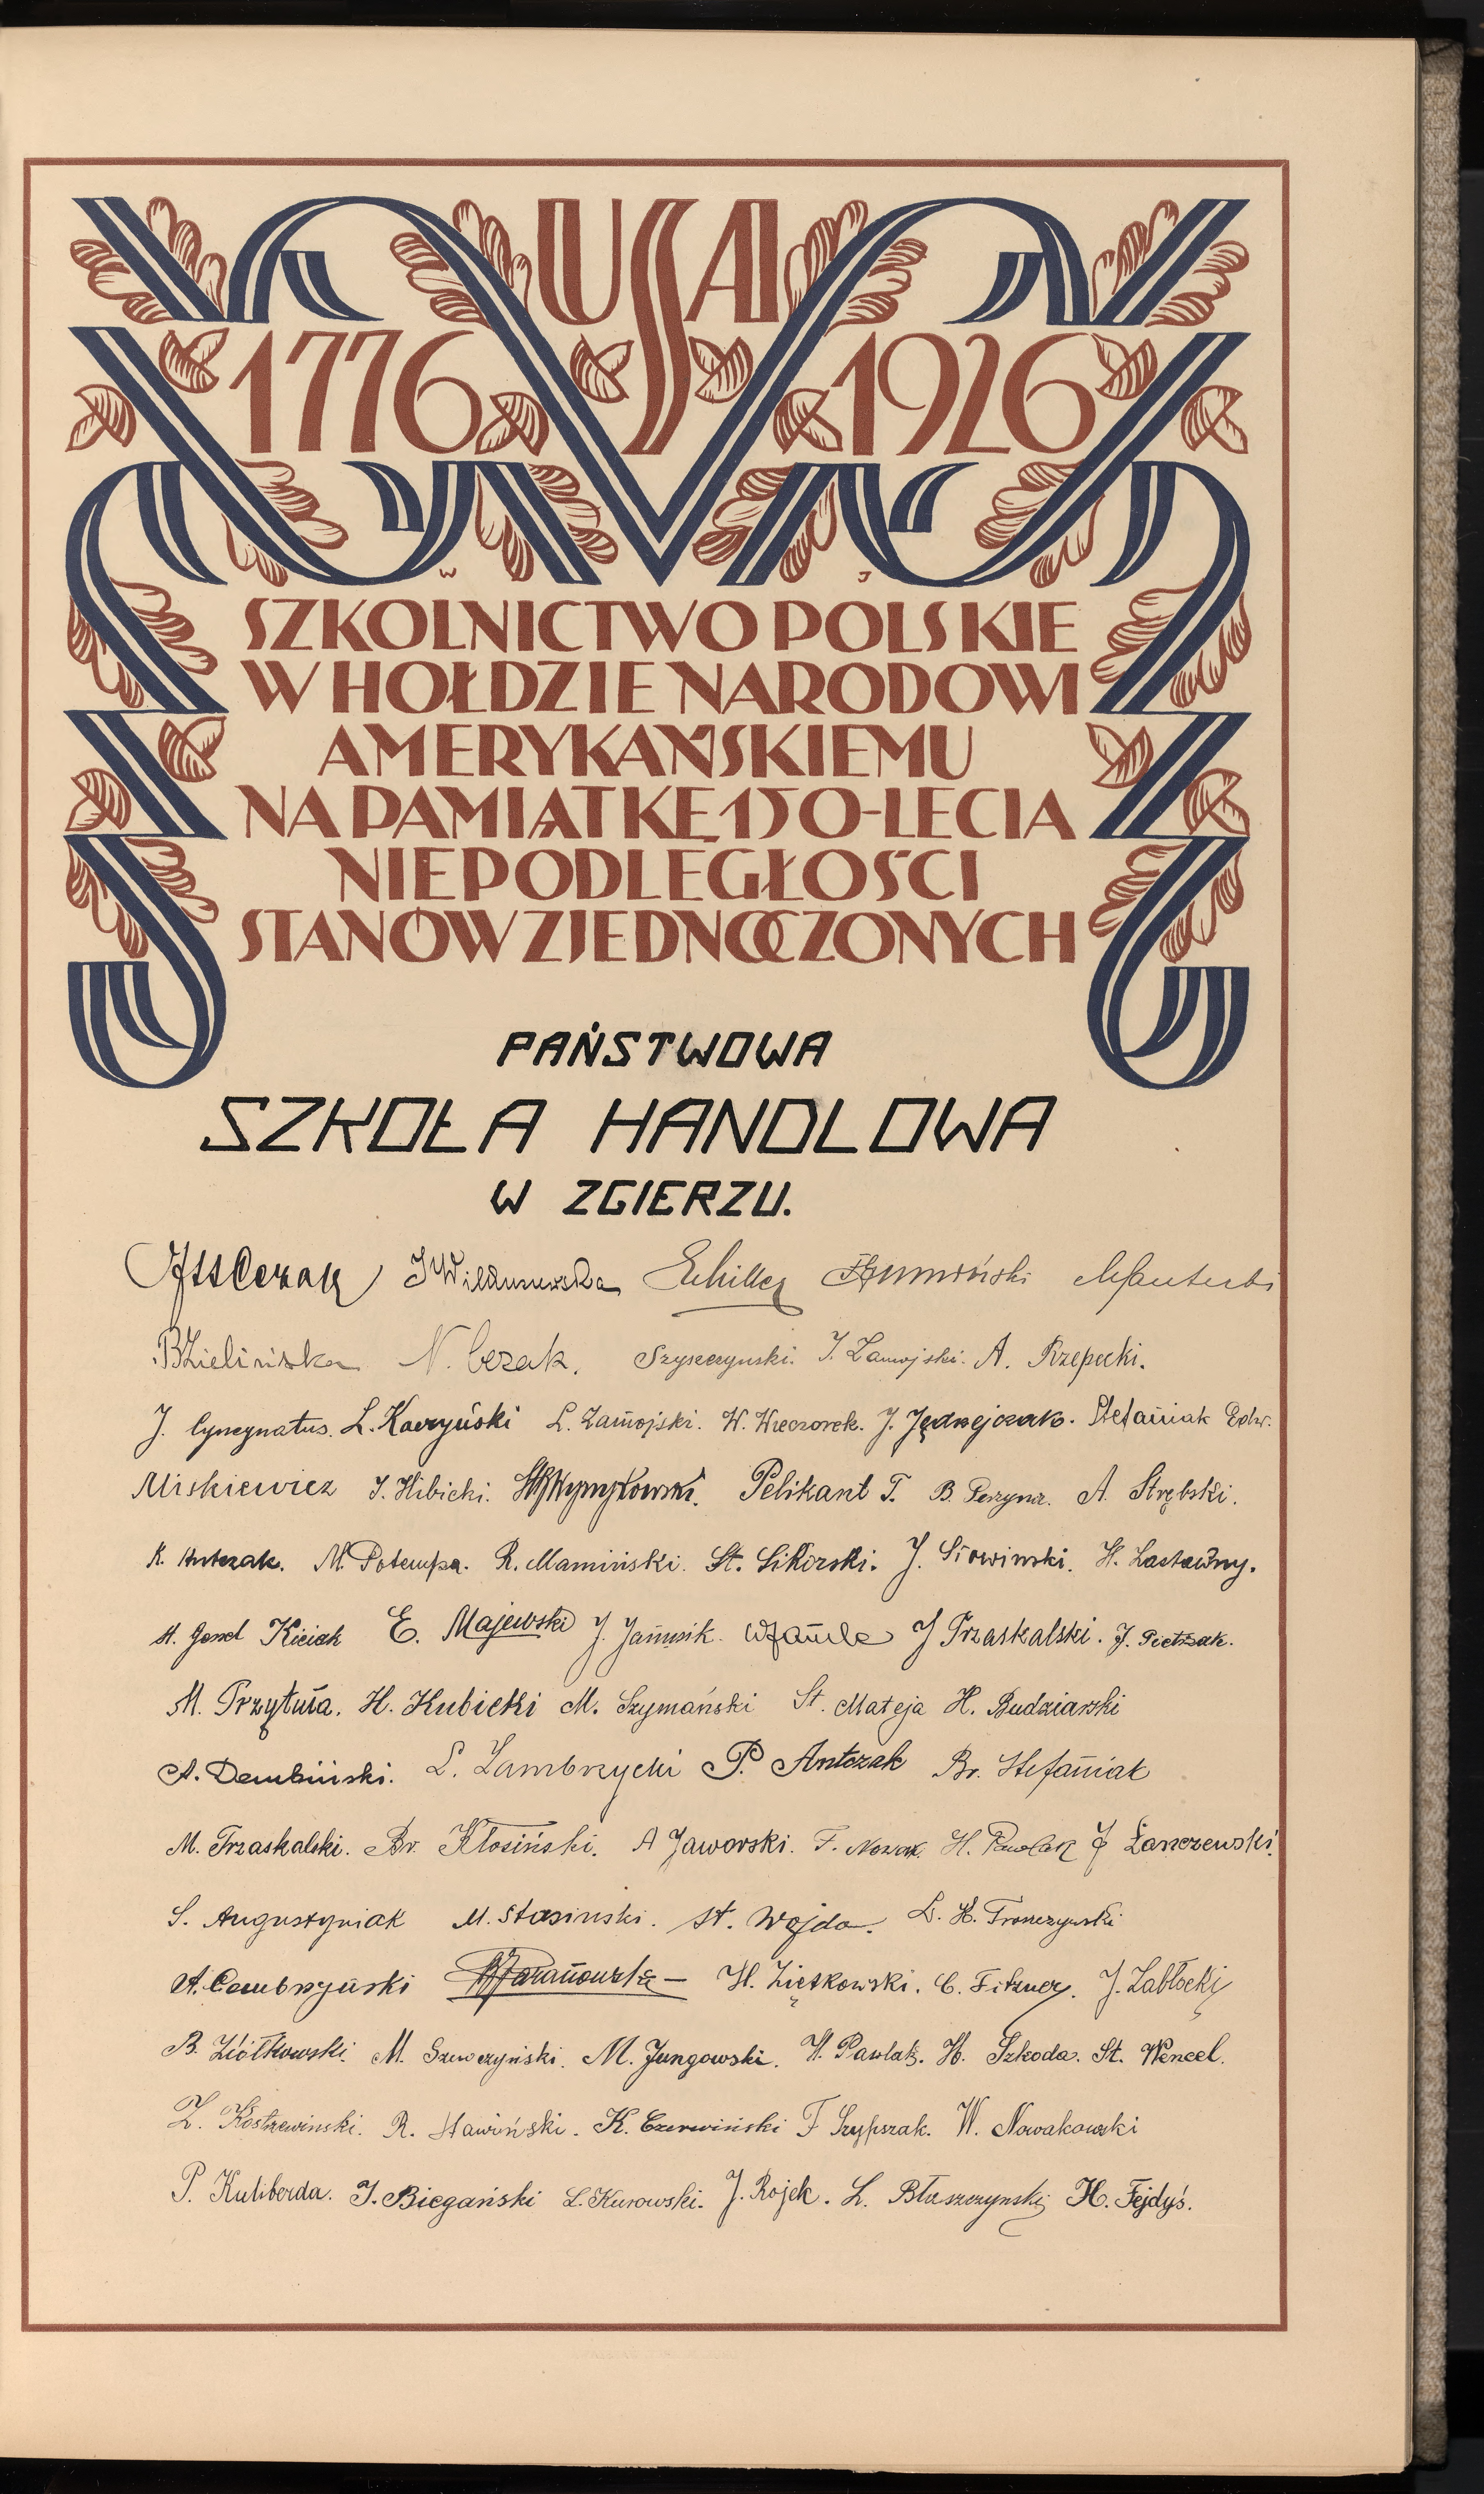 USA
1776 1926
W J
SZKOLNICTWO POLSKIE
W HOŁDZIE NARODOWI
AMERYKAŃSKIEMU
NA PAMIĄTKĘ 150-LECIA
NIEPODLEGŁOŚCI
STANÓW ZJEDNOCZONYCH
PAŃSTWOWA
SZKOŁA HANDLOWA
W ZGIERZU.
Schiller
BZielińska N. Cezak. Szyszczynski. J. Zamojski. A. Rzepecki.
J. Cyncynatus. L. Kaczyński L. Zamojski. W. Wieczorek. J. Jędrzejczak. Stefaniak Edw.
Miskiewicz J. Hibicki. Pelikant T. B. Perzyna. A. Strębski.
K. Antczak. M. Potempa. R. Mamiński. St. Sikorski. J. Siowinski. H. Lastawny.
Kiciak E. Majewski J. Janusik. J Trzaskalski. J. Pietrzak.
M. Przytuła. H. Kubicki M. Szymański St. Mateja H. Budziarski
A. Dembiński. L. Zambrzycki P. Antczak Br. Stefaniak
M. Trzaskalski. Br. Kłosiński. A Jaworski. F. Nowak. H. Pawlak J Łanczewski.
S. Augustyniak M. Stasinski. St. Wojda. L. H. Tronczynski
A. Cembrzyński H. Ziętkowski. C. Fitzner. J. Zabłocki
B. Ziółkowski. M. Szewczyński. M. Jungowski. W. Pawlak. H. Szkoda. St. Wencel.
Z. Kostrzewinski. R. Sławiński. K. Czerwiński F Szypszak. W. Nowakowski
P. Kuliberda. J. Biegański L. Kurowski. J. Rojek. L. Błaszczynski H. Fejdyś.